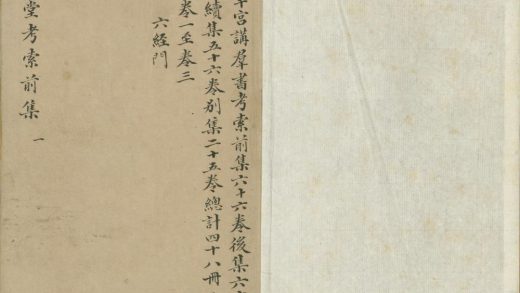 宮講羣書考索前集六十六卷後集六
續集五十六卷別集二十五卷總計四十八冊
卷一至卷三
六經門
堂考索前集 一